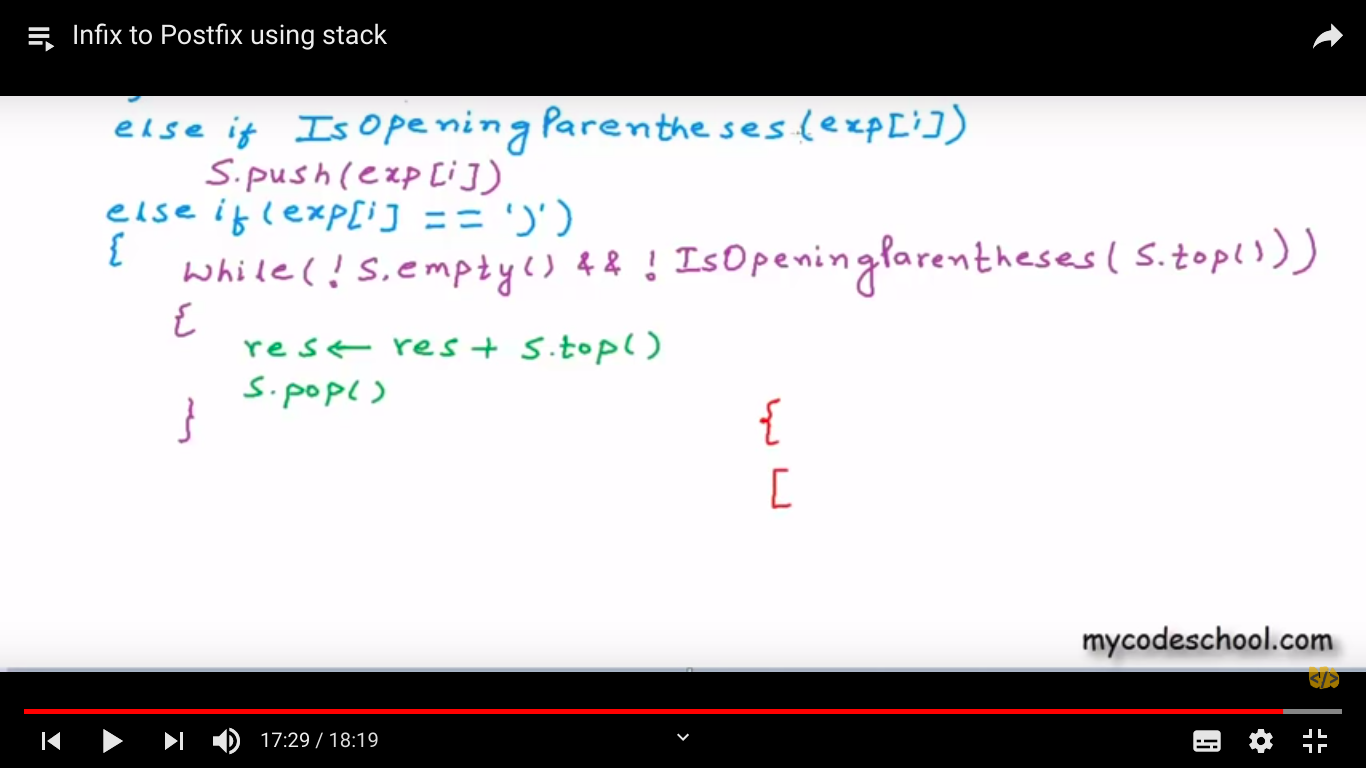 Infix to Postfix using stack
else if IsOpeningParentheses(exp[i])
S.push(exp[i])
else if(exp[i] == ')')
{
while(!S.empty() && !IsOpeningParentheses(S.top()))
{
res← res + S.top()
S.pop()
}
{
[
mycodeschool.com
</>
17:29 / 18:19